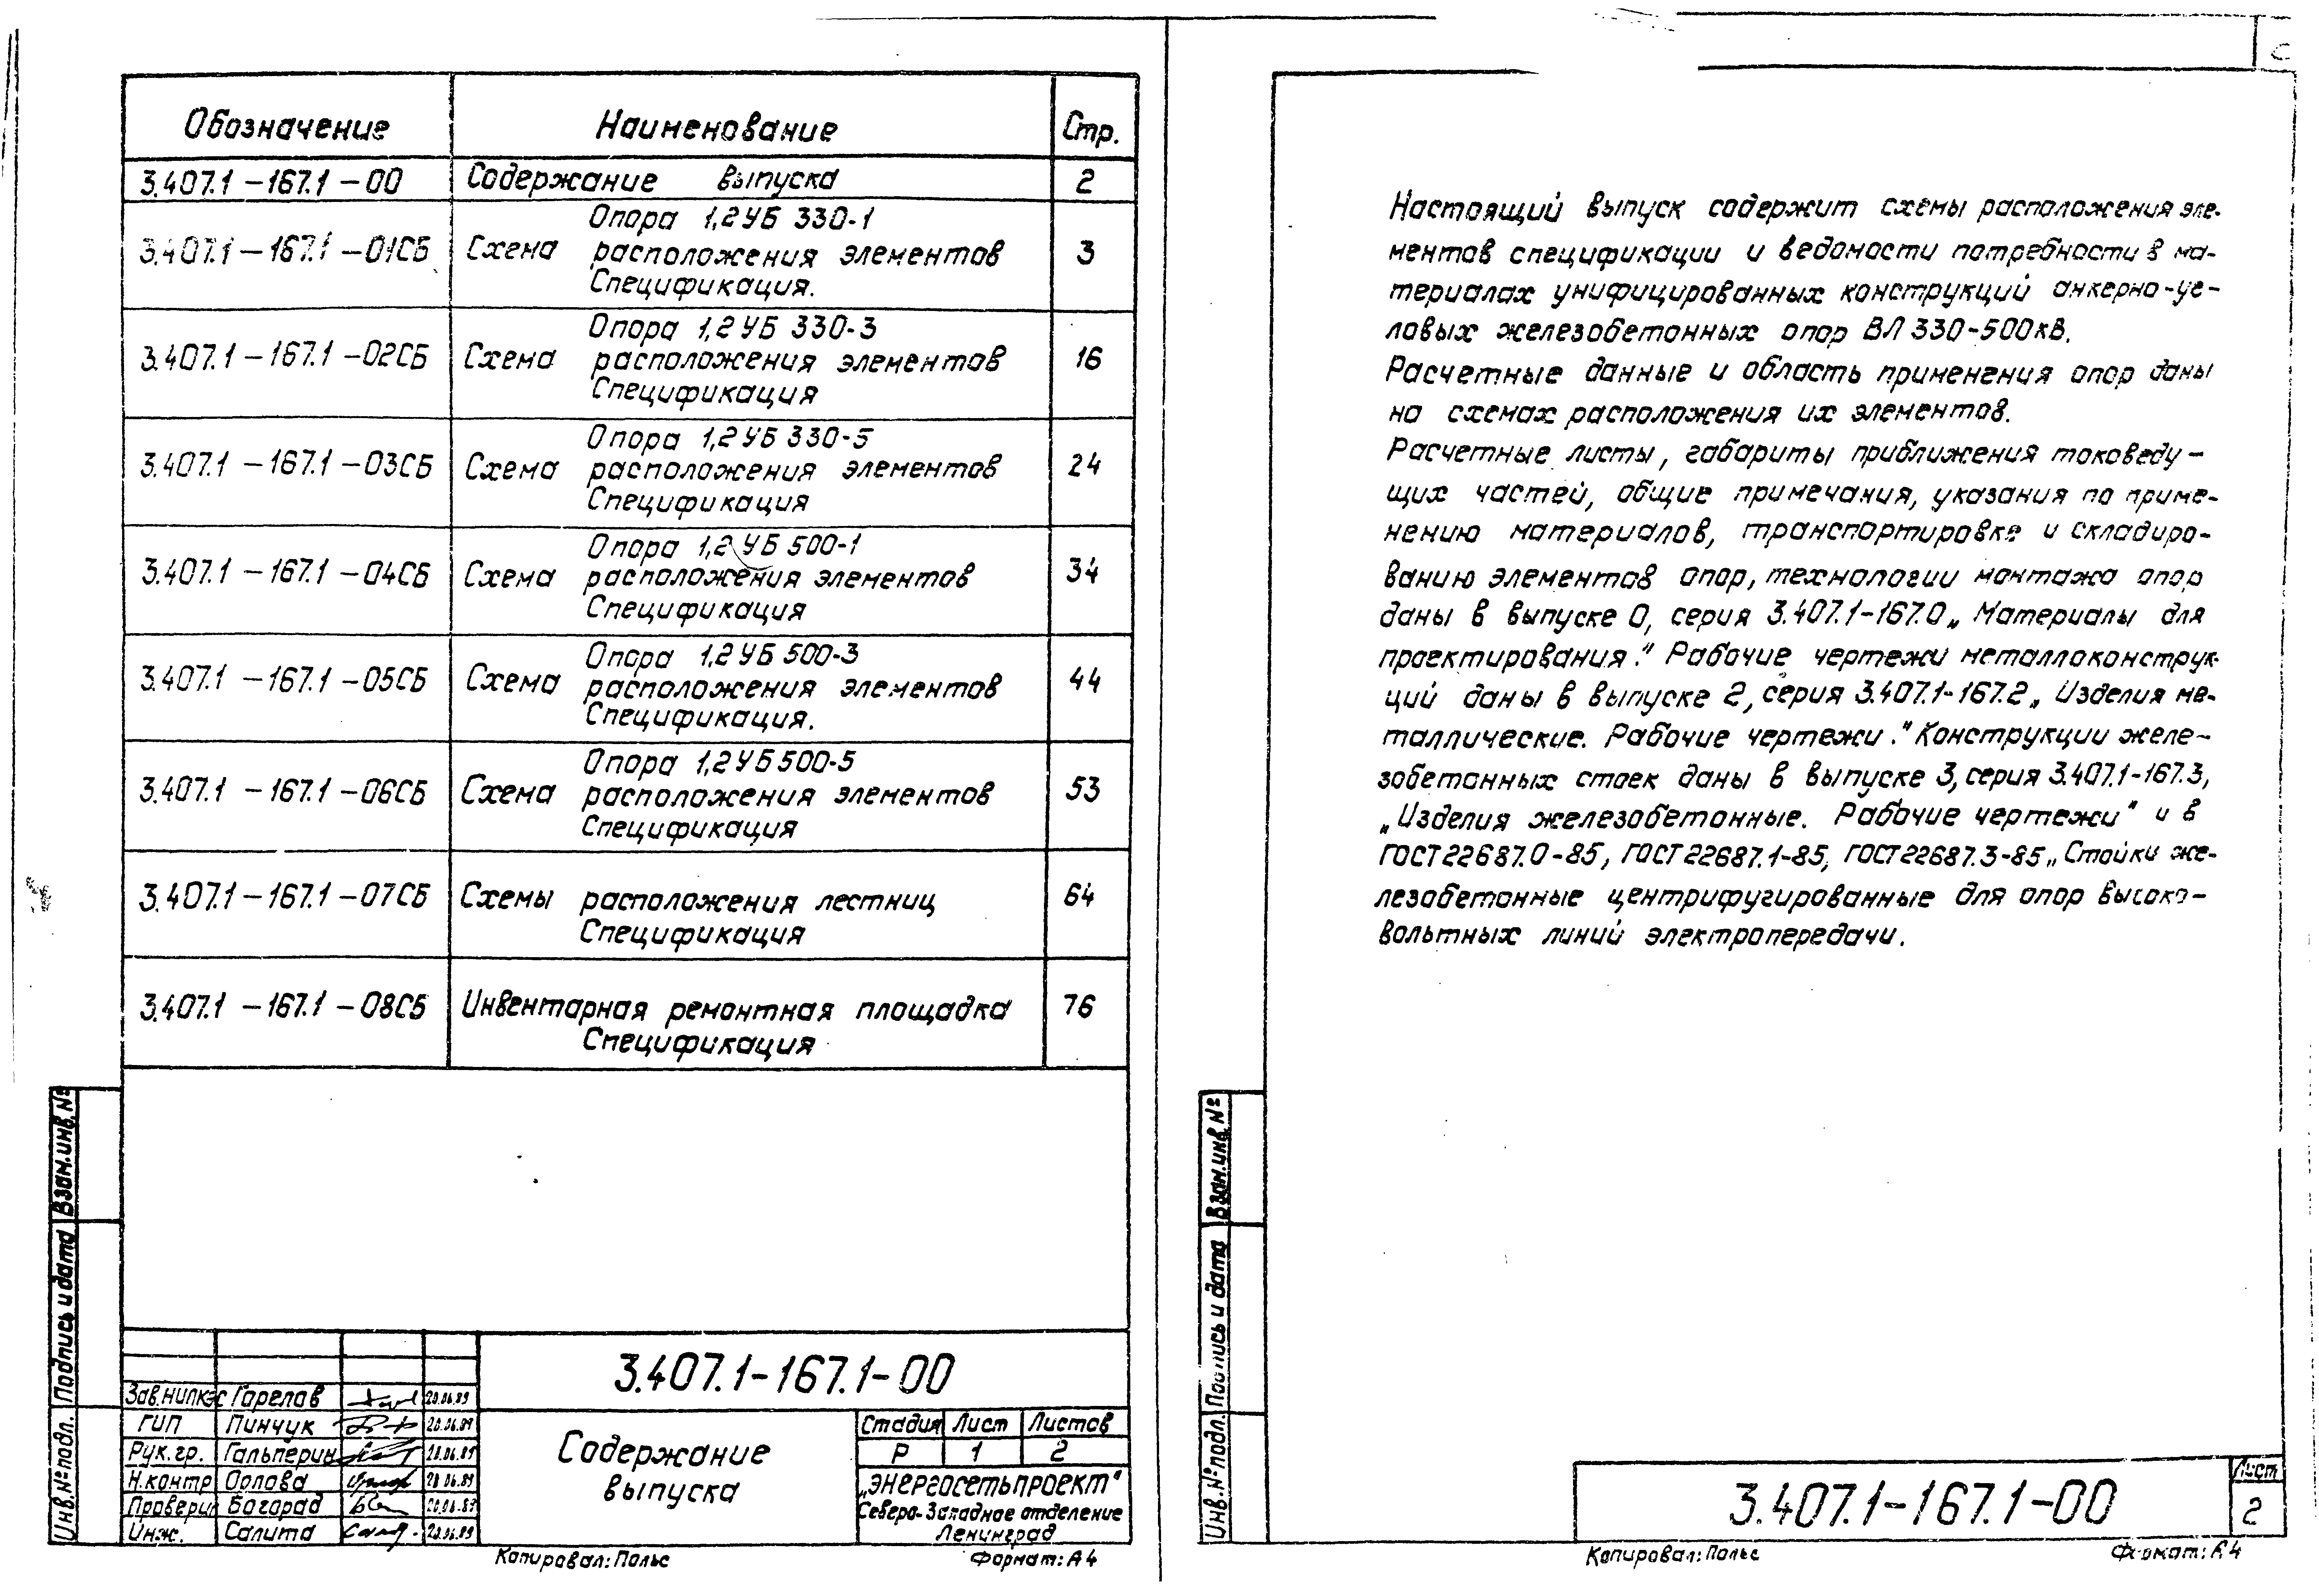 Обозначение Наименование Стр.
3.407.1-167.1-00 Содержание выпуска 2
Опора 1,2УБ 330-1
3.407.1-167.1-01СБ Схема расположения элементов 3
Спецификация.
Опора 1,2УБ 330-3
3.407.1-167.1-02СБ Схема расположения элементов 16
Спецификация
Опора 1,2УБ 330-5
3.407.1-167.1-03СБ Схема расположения элементов 24
Спецификация
Опора 1,2УБ 500-1
3.407.1-167.1-04СБ Схема расположения элементов 34
Спецификация
Опора 1,2УБ 500-3
3.407.1-167.1-05СБ Схема расположения элементов 44
Спецификация.
Опора 1,2УБ 500-5
3.407.1-167.1-06СБ Схема расположения элементов 53
Спецификация
3.407.1-167.1-07СБ Схемы расположения лестниц 64
Спецификация
3.407.1-167.1-08СБ Инвентарная ремонтная площадка 76
Спецификация
Взам.инв.№
Подпись и дата
Инв.№подл.
3.407.1-167.1-00
Зав.НИЛКЭС Гарелав 20.06.89
ГИП Пинчук 20.06.89
Рук.гр. Гальперин 20.06.89
Н.контр Орлова 20.06.89
Проверил Богорад 20.06.89
Инж. Салита 20.06.89
Содержание
выпуска
Стадия Лист Листов
Р 1 2
„ЭНЕРГОСЕТЬПРОЕКТ"
Северо-Западное отделение
Ленинград
Копировал: Польс Формат: А4
Настоящий выпуск содержит схемы расположения эле-
ментов спецификации и ведомости потребности в ма-
териалах унифицированных конструкций анкерно-уг-
ловых железобетонных опор ВЛ 330-500кВ.
Расчетные данные и область применения опор даны
на схемах расположения их элементов.
Расчетные листы, габариты приближения токоведу-
щих частей, общие примечания, указания по приме-
нению материалов, транспортировке и складиро-
ванию элементов опор, технологии монтажа опор
даны в выпуске 0, серия 3.407.1-167.0 „Материалы для
проектирования." Рабочие чертежи металлоконструк-
ций даны в выпуске 2, серия 3.407.1-167.2 „Изделия ме-
таллические. Рабочие чертежи." Конструкции желе-
зобетонных стоек даны в выпуске 3, серия 3.407.1-167.3,
„Изделия железобетонные. Рабочие чертежи" и в
ГОСТ 22687.0-85, ГОСТ 22687.1-85, ГОСТ 22687.3-85 „Стойки же-
лезобетонные центрифугированные для опор высоко-
вольтных линий электропередачи.
Взам.инв.№
Подпись и дата
Инв.№подл.
3.407.1-167.1-00
Лист
2
Копировал: Польс Формат: А4